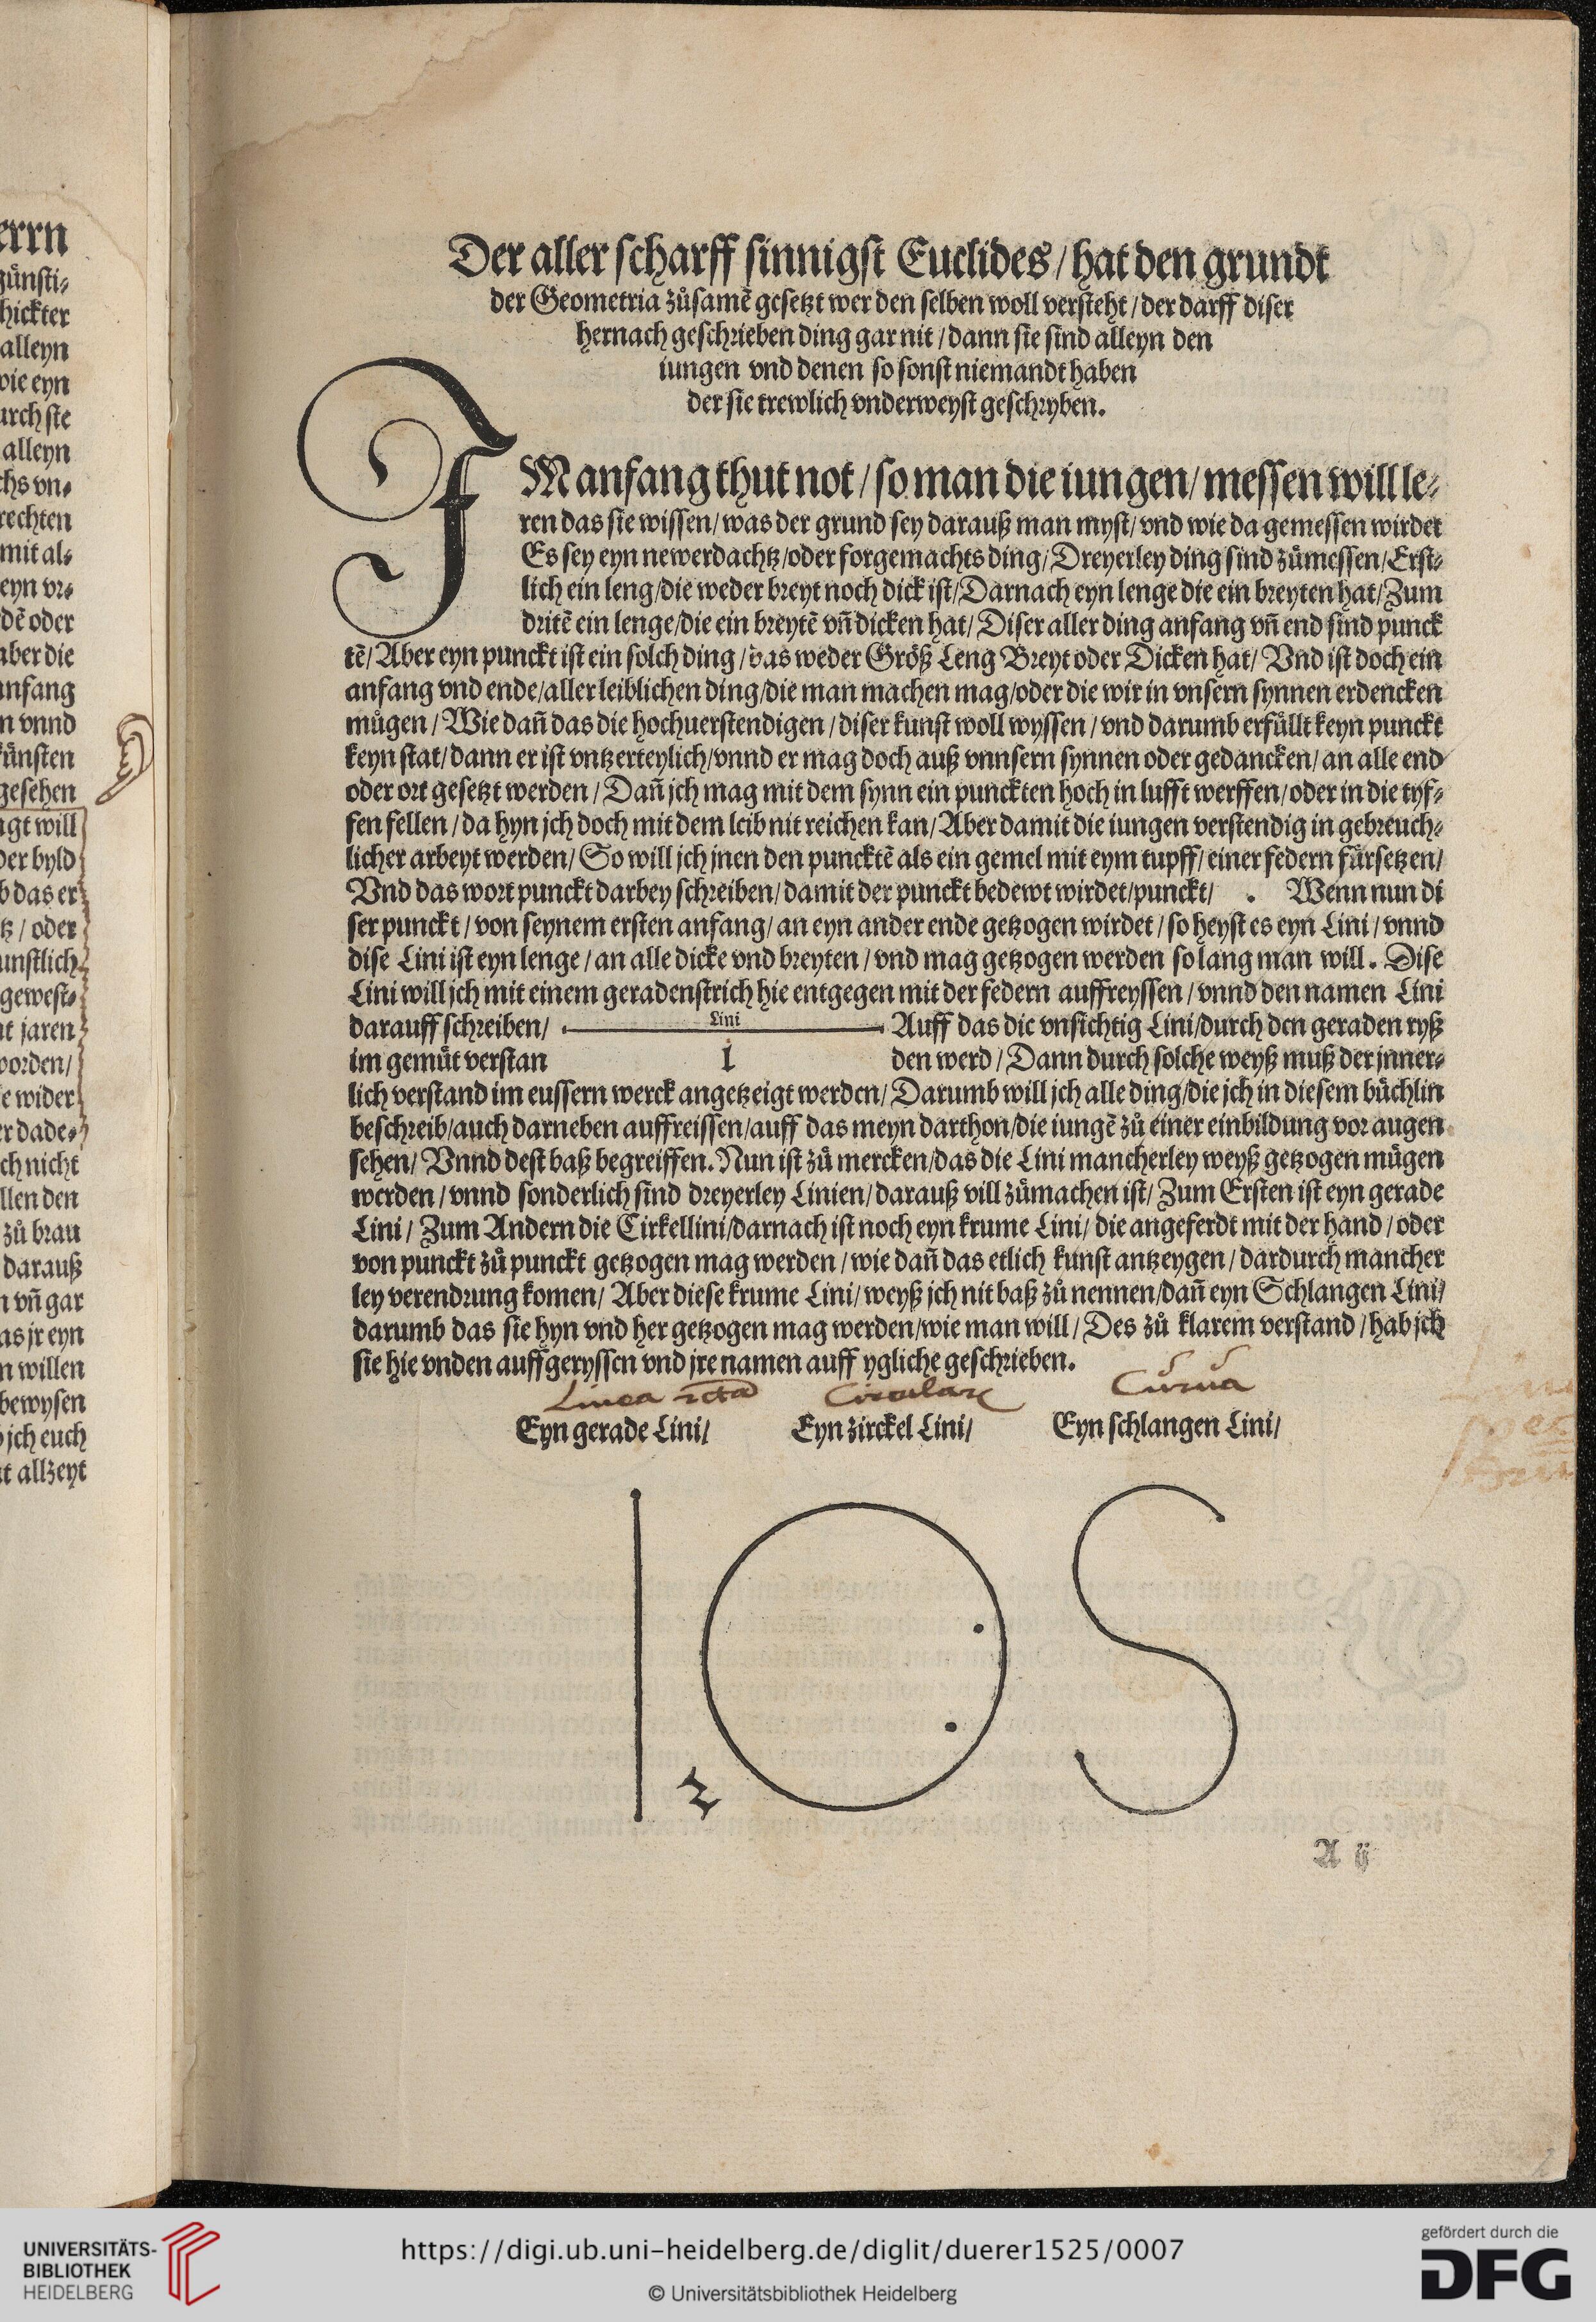 errn
günsti⸗
hickter
alleyn
wie eyn
urch sie
alleyn
chs vn⸗
rechten
mit al⸗
eyn vr⸗
dē oder
aber die
anfang
n vnnd
künsten
gesehen
agt will
der byld
b das er
tz / oder
unstlich
gewest⸗
nt jaren
worden/
e wider
er dade⸗
ch nicht
llen den
zů brau
darauß
n vñ gar
as jr eyn
n willen
bewysen
jch euch
at allzeyt
Der aller scharff sinnigst Euclides / hat den grundt
der Geometria zůsamē gesetzt wer den selben woll versteht / der darff diser
hernach geschrieben ding gar nit / dann sie sind alleyn den
iungen vnd denen so sonst niemandt haben
der sie trewlich vnderweyst geschryben.
IM anfang thut not / so man die iungen / messen will le⸗
ren das sie wissen / was der grund sey darauß man myst / vnd wie da gemessen wirdet
Es sey eyn newerdachtz / oder forgemachts ding / Dreyerley ding sind zůmessen / Erst⸗
lich ein leng / die weder breyt noch dick ist / Darnach eyn lenge die ein breyten hat / Zum
dritē ein lenge / die ein breytē vñ dicken hat / Diser aller ding anfang vñ end sind punck
tē / Aber eyn punckt ist ein solch ding / das weder Größ Leng Breyt oder Dicken hat / Vnd ist doch ein
anfang vnd ende / aller leiblichen ding / die man machen mag / oder die wir in vnsern synnen erdencken
mügen / Wie dañ das die hochuerstendigen / diser kunst woll wyssen / vnd darumb erfüllt keyn punckt
keyn stat / dann er ist vntzerteylich / vnnd er mag doch auß vnnsern synnen oder gedancken / an alle end
oder ort gesetzt werden / Dañ jch mag mit dem synn ein punckten hoch in lufft werffen / oder in die tyf⸗
fen fellen / da hyn jch doch mit dem leib nit reichen kan / Aber damit die iungen verstendig in gebreuch⸗
licher arbeyt werden / So will jch jnen den puncktē als ein gemel mit eym tupff / einer federn fürsetzen /
Vnd das wort punckt darbey schreiben / damit der punckt bedewt wirdet / punckt / . Wenn nun di
ser punckt / von seynem ersten anfang / an eyn ander ende getzogen wirdet / so heyst es eyn Lini / vnnd
dise Lini ist eyn lenge / an alle dicke vnd breyten / vnd mag getzogen werden so lang man will. Dise
Lini will jch mit einem geradenstrich hie entgegen mit der federn auffreyssen / vnnd den namen Lini
darauff schreiben / Lini Auff das die vnsichtig Lini / durch den geraden ryß
im gemüt verstan 1 den werd / Dann durch solche weyß muß der jnner⸗
lich verstand im eussern werck angetzeigt werden / Darumb will jch alle ding / die jch in diesem büchlin
beschreib / auch darneben auffreissen / auff das meyn darthon / die iungē zů einer einbildung vor augen
sehen / Vnnd dest baß begreiffen. Nun ist zů mercken / das die Lini mancherley weyß getzogen mügen
werden / vnnd sonderlich sind dreyerley Linien / darauß vill zůmachen ist / Zum Ersten ist eyn gerade
Lini / Zum Andern die Cirkellini / darnach ist noch eyn krume Lini / die angeferdt mit der hand / oder
von punckt zů punckt getzogen mag werden / wie dañ das etlich kunst antzeygen / dardurch mancher
ley verendrung komen / Aber diese krume Lini / weyß jch nit baß zů nennen / dañ eyn Schlangen Lini /
darumb das sie hyn vnd her getzogen mag werden / wie man will / Des zů klarem verstand / hab jch
sie hie vnden auffgeryssen vnd jre namen auff ygliche geschrieben.
Linea rcta Circularis Curua
Eyn gerade Lini / Eyn zirckel Lini / Eyn schlangen Lini /
A ij
UNIVERSITÄTS-
BIBLIOTHEK
HEIDELBERG
https://digi.ub.uni-heidelberg.de/diglit/duerer1525/0007
© Universitätsbibliothek Heidelberg
gefördert durch die
DFG